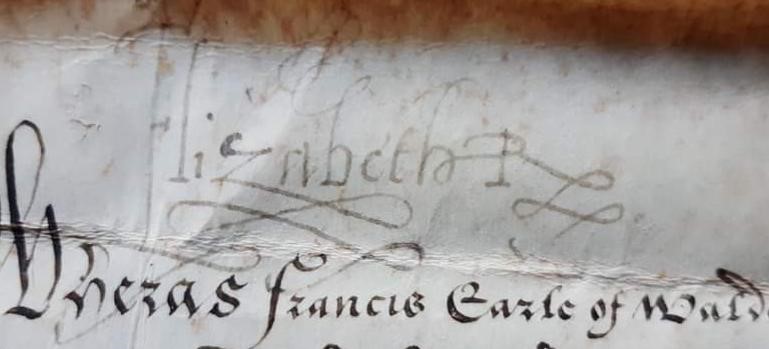 Elizabeth R
Wheras Francis Earle of Wald